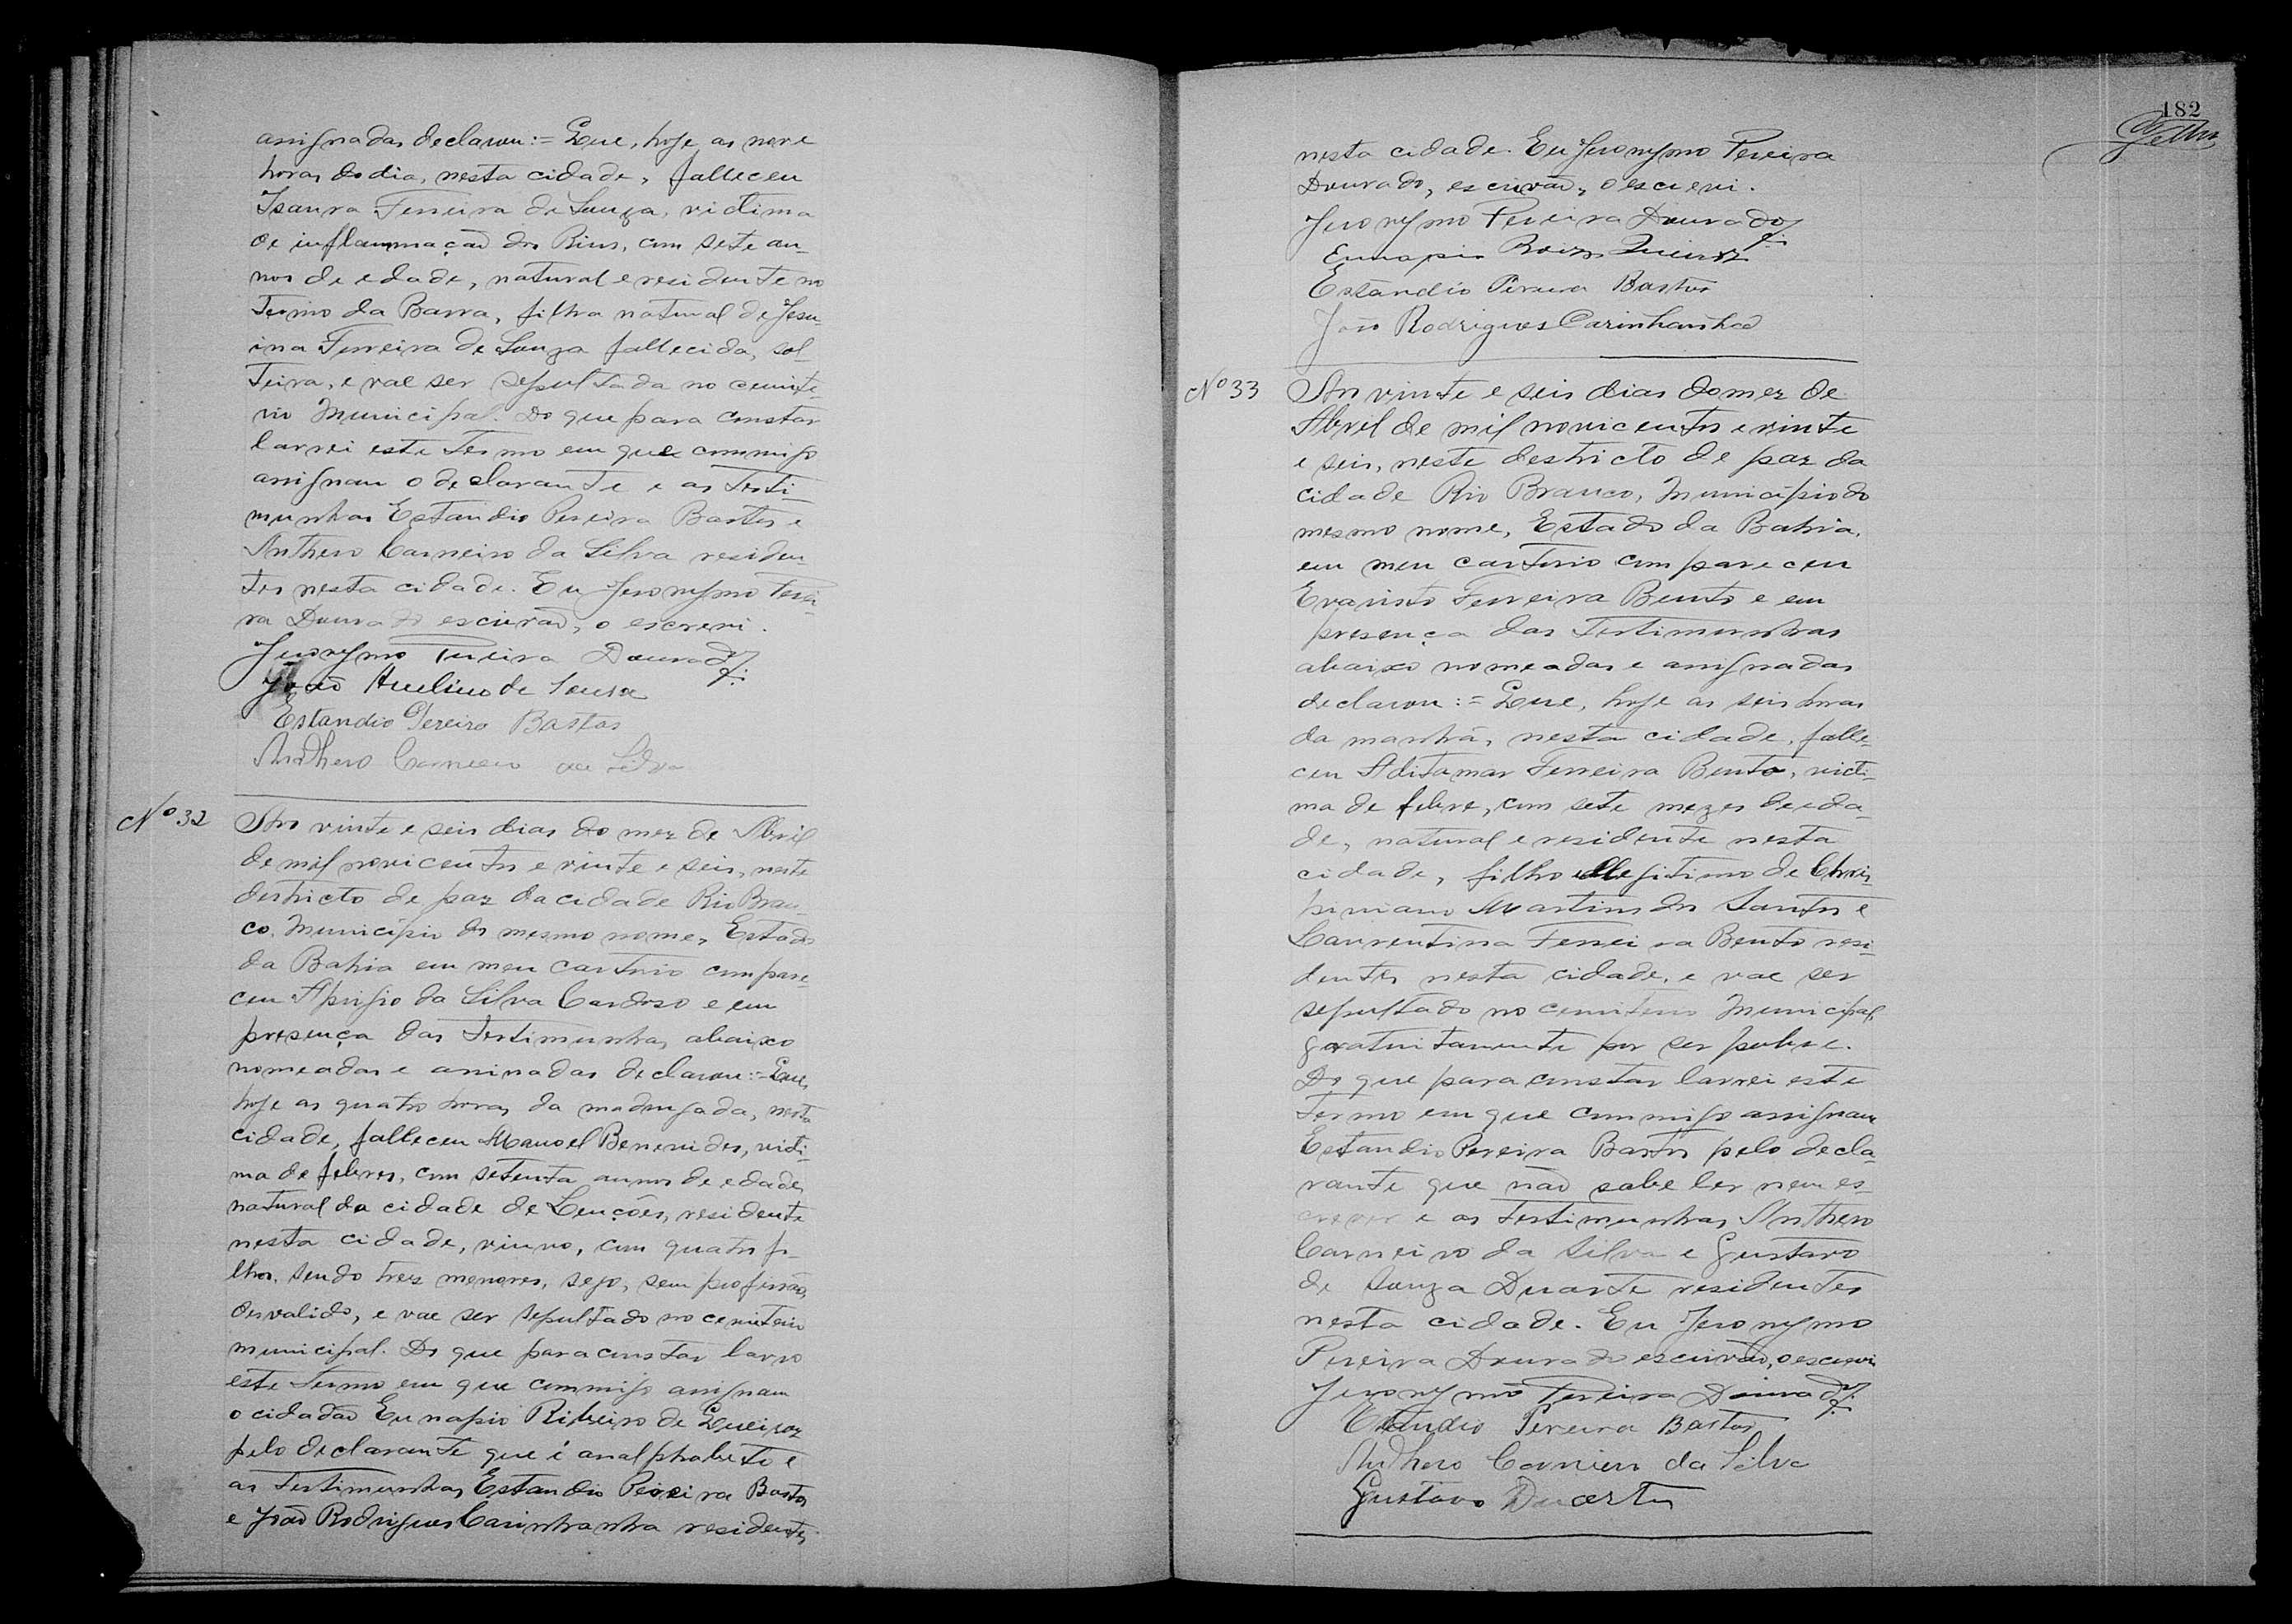 assignadas declarou:= Que, hoje, as nove
horas do dia, nesta cidade, falleceu
Isaura Ferreira de Souza, victima
de inflammação dos Rins, com sete an-
nos de edade, natural e residente no
Termo da Barra, filha natural de Jesu-
ina Ferreira de Souza fallecida, sol-
teira, e vae ser sepultada no cemite-
rio Municipal. Do que para constar
lavrei este termo em que commigo
assignam o declarante e as testi-
munhas Estandio Pereira Bastos e
Anthero Carneiro da Silva residen-
tes nesta cidade. Eu Jeronymo Perei-
ra Dourado escrivão, o escrevi.
Jeronymo Pereira Dourado
João de Sousa
Estandio Pereira Bastos
Anthero Carneiro da Silva
Nº 32
Aos vinte e seis dias do mez de Abril
de mil novicentos e vinte e seis, neste
destricto de paz da cidade Rio Bran-
co, Municipio do mesmo nome, Estado
da Bahia em meu cartorio compare-
ceu Aprigio da Silva Cardoso e em
presença das testimunhas abaixo
nomeadas e assinadas declarou:= Que,
hoje as quatro horas da madrugada, nesta
cidade, falleceu Manoel Benevides, victi-
ma de febres, com setenta annos de edade,
natural da cidade de Lençóes, residente
nesta cidade, viuvo, com quatro fi-
lhos, sendo trez menores, sego, sem profissão,
desvalido, e vae ser sepultado no cemiterio
municipal. Do que para constar lavro
este termo em que commigo assignam
o cidadão Eunapio Ribeiro de Queiroz
pelo declarante que é analphabeto e
as testimunhas Estandio Pereira Bastos
e João Rodrigues Carinhanha residentes
182
nesta cidade. Eu Jeronymo Pereira
Dourado, escrivão, o escrevi.
Jeronymo Pereira Dourado
Eunapio Queiroz
Estandio Pereira Bastos
João Rodrigues Carinhanha
Nº 33
Aos vinte e seis dias do mez de
Abril de mil novicentos e vinte
e seis, neste destricto de paz da
cidade Rio Branco, Municipio do
mesmo nome, Estado da Bahia,
em meu cartorio compareceu
Evaristo Ferreira Bento e em
presença das testimunhas
abaixo nomeadas e assignadas
declarou:= Que, hoje as seis horas
da manhã, nesta cidade, falle-
ceu Aditamar Ferreira Bento, victi-
ma de febre, com sete mezes de eda-
de, natural e residente nesta
cidade, filho illegitimo de Chris-
piniano Martins dos Santos e
Laurentina Ferreira Bento resi-
dentes nesta cidade, e vae ser
sepultado no cemiterio Municipal,
gratuitamente por ser pobre.
Do que para constar lavrei este
termo em que commigo assignam
Estandio Pereira Bastos pelo decla-
rante que não sabe ler nem es-
crever e as testimunhas Anthero
Carneiro da Silva e Gustavo
de Souza Duarte residentes
nesta cidade. Eu Jeronymo
Pereira Dourado escrivão, o escrevi
Jeronymo Pereira Dourado
Estandio Pereira Bastos
Anthero Carneiro da Silva
Gustavo Duarte